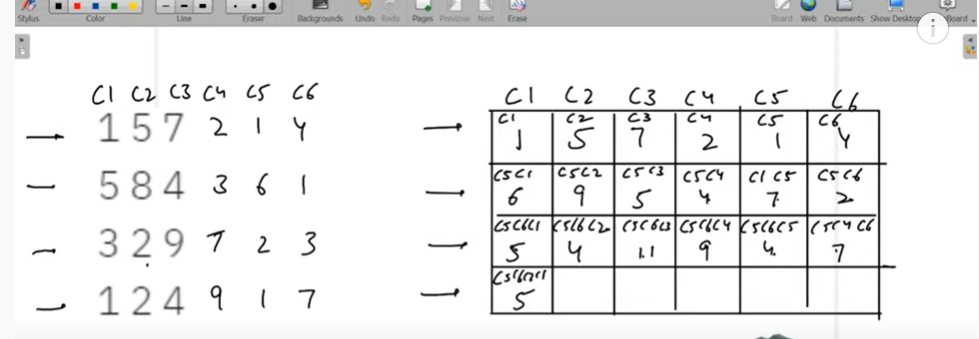 Stylus Color Line Eraser Backgrounds Undo Redo Pages Previous Next Erase Board Web Documents Show Desktop Board
C1 C2 C3 C4 C5 C6
1 5 7 2 1 4
5 8 4 3 6 1
3 2 9 7 2 3
1 2 4 9 1 7
C1 C2 C3 C4 C5 C6
C1 C2 C3 C4 C5 C6
1 5 7 2 1 4
C5C1 C5C2 C5C3 C5C4 C1C5 C5C6
6 9 5 4 7 2
C5C6C1 C5C6C2 C5C6C3 C5C6C4 C5C6C5 C5C4C6
5 4 11 9 4 7
5